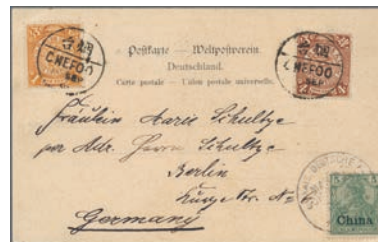 煙台
CHEFOO
SEP
煙台
CHEFOO
SEP
Postkarte — Weltpostverein.
Deutschland.
Carte postale — Union postale universelle.
Fräulein Marie Schultze
per Adr. Herrn Schultze
Berlin
Germany
5
5
China